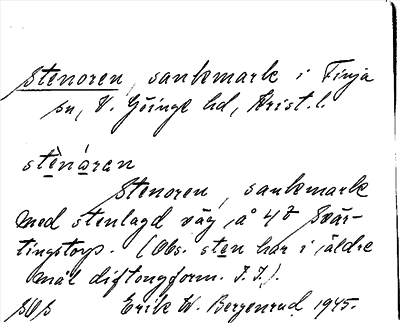 Stenoren, sankmark i Finja
sn, V. Göinge hd, Krist. l.
stènáran
Stenoren, sankmark
med stenlagd väg, å 4² Svär-
tingstorp. (Obs. sten har i äldre
mål diftongform. I. I.).
Erik W. Bergenrud 1945.